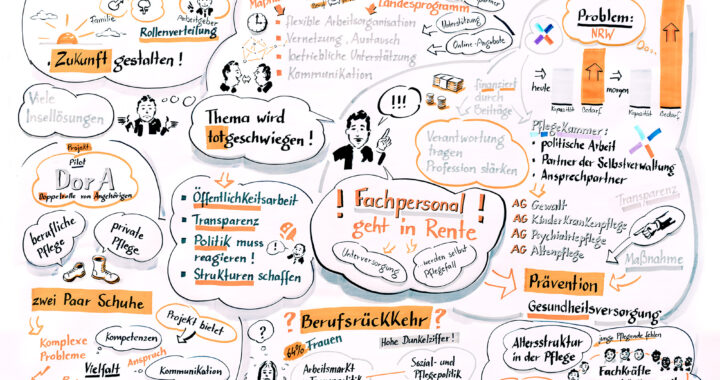 Familie
Arbeitgeber
Rollenverteilung
Zukunft gestalten!
Landesprogramm
flexible Arbeitsorganisation
Vernetzung, Austausch
betriebliche Unterstützung
Kommunikation
Unterstützung
Online-Angebote
Problem:
NRW
heute
Kapazität
Bedarf
morgen
Kapazität
Bedarf
Viele
Insellösungen
Thema wird
totgeschwiegen!
!!!
finanziert
durch
Beiträge
Verantwortung
tragen
Profession stärken
Pflegekammer:
politische Arbeit
Partner der Selbstverwaltung
Ansprechpartner
Transparenz
AG Gewalt
AG Kinderkrankenpflege
AG Psychiatriepflege
AG Altenpflege
Maßnahme
Prävention
Gesundheitsversorgung
Projekt
Pilot
DorA
Doppelrolle von Angehörigen
berufliche
Pflege
private
Pflege
zwei Paar Schuhe
Komplexe
Probleme
Kompetenzen
Projekt bietet
Vielfalt
Anspruch
Kommunikation
Öffentlichkeitsarbeit
Transparenz
Politik muss
reagieren!
Strukturen schaffen
! Fachpersonal !
geht in Rente
Unterversorgung
werden selbst
Pflegefall
? Berufsrückkehr ?
64% Frauen
Hohe Dunkelziffer!
Arbeitsmarkt
Sozial- und
Pflegepolitik
Altersstruktur
in der Pflege
junge Pflegende fehlen
Fachkräfte